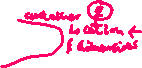 container
location ←
& dimensions